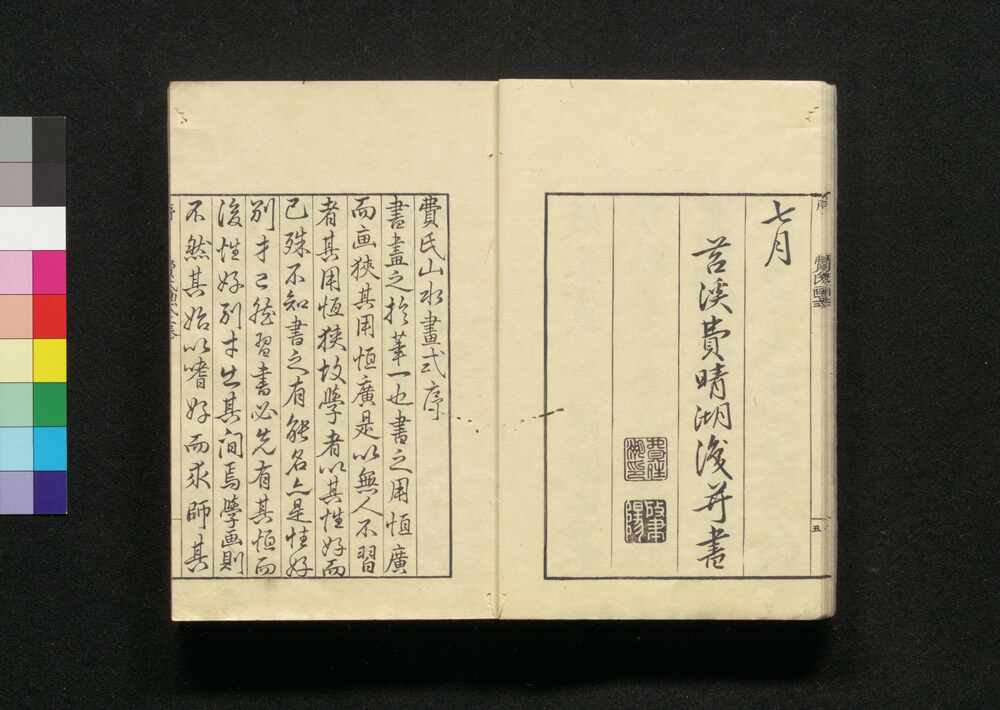 七月
苕溪費晴湖浚并書
五
費氏山水畫式序
書畫之於華一也書之用恒廣
而画狹其用恒廣是以無人不習
者其用恒狹故學者以其性好而
已殊不知書之有能名亦是性好
別才已然習書必先有其恒而
後性好別才出其间焉學画則
不然其始以嗜好而求師其